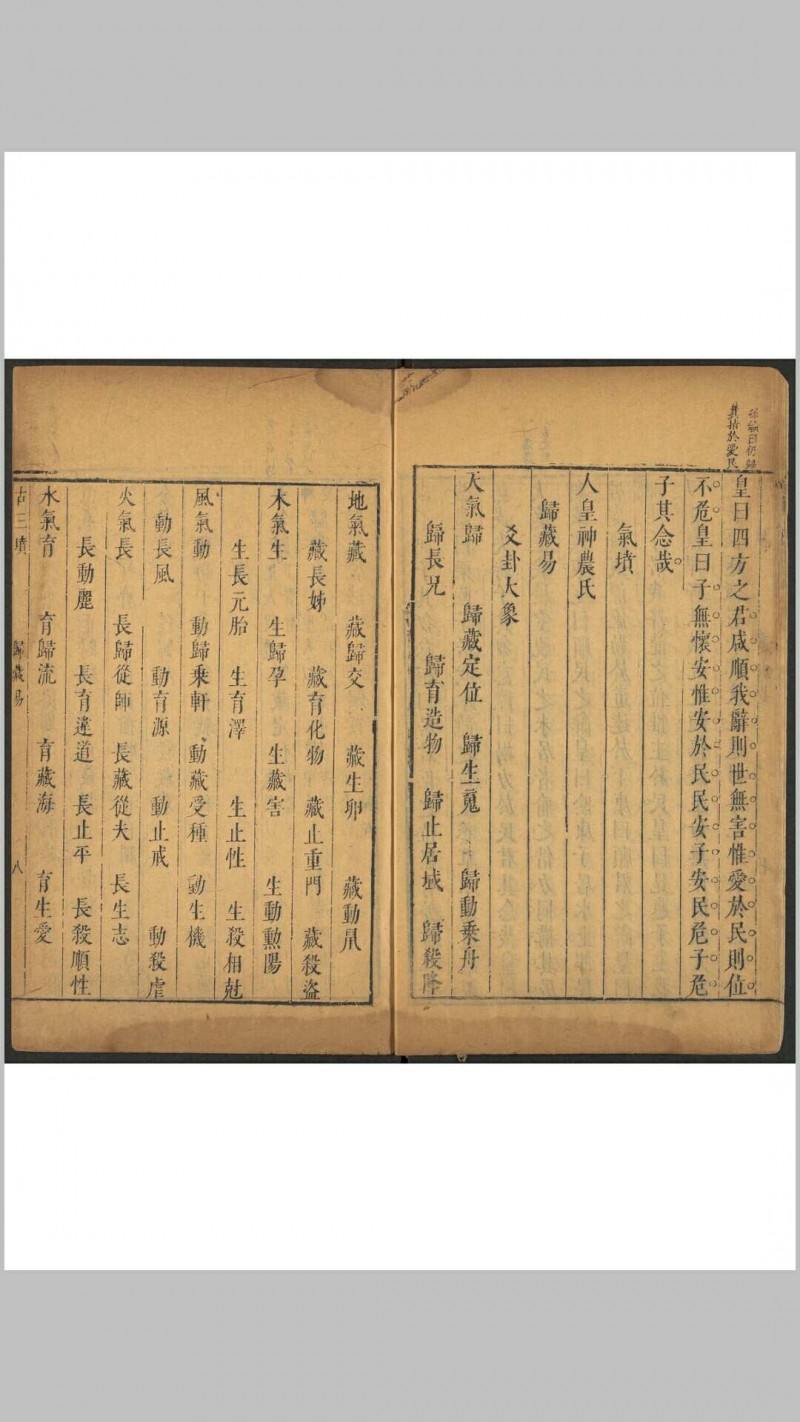 皇曰四方之君咸順我辭則世無害惟愛於民則位
不危皇曰子無懷安惟安於民民安子安民危子危
子其念哉
氣墳
人皇神農氏
歸藏易
爻卦大象
天氣歸 歸藏定位 歸生䰟 歸動乘舟
歸長兄 歸育造物 歸止居域 歸殺降
地氣藏 藏歸交 藏生卵 藏動鼠
藏長姊 藏育化物 藏止重門 藏殺盜
木氣生 生歸孕 生藏害 生動勲陽
生長元胎 生育澤 生止性 生殺相尅
風氣動 動歸乘軒 動藏受種 動生機
動長風 動育源 動止戒 動殺虐
火氣長 長歸從師 長藏從夫 長生志
長動麗 長育違道 長止平 長殺順性
水氣育 育歸流 育藏海 育生愛
古三墳 歸藏易 八